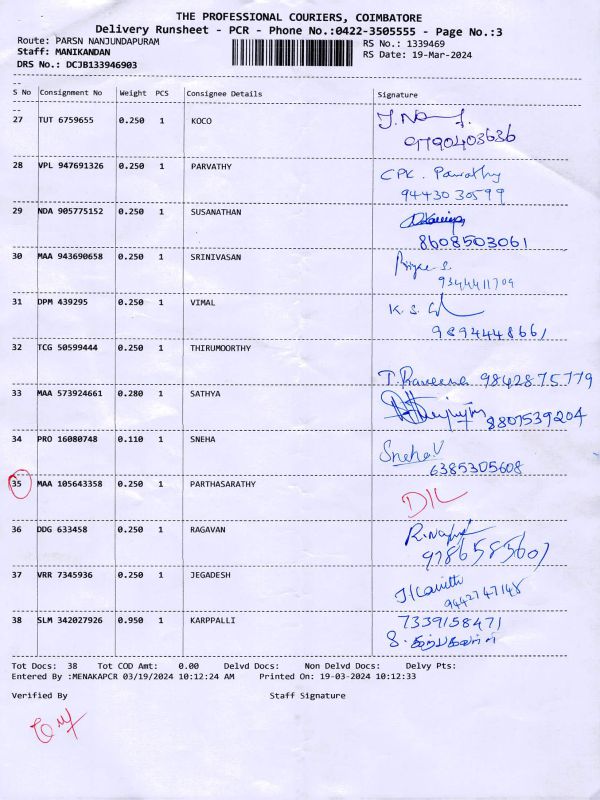 THE PROFESSIONAL COURIERS, COIMBATORE
Delivery Runsheet - PCR - Phone No.:0422-3505555 - Page No.:3
Route: PARSN NANJUNDAPURAM
RS No.: 1339469
Staff: MANIKANDAN
RS Date: 19-Mar-2024
DRS No.: DCJB133946903
S No Consignment No Weight PCS Consignee Details Signature
27 TUT 6759655 0.250 1 KOCO
9790403636
28 VPL 947691326 0.250 1 PARVATHY CPK. Parvathy
9443030599
29 NDA 905775152 0.250 1 SUSANATHAN
8608503061
30 MAA 943690658 0.250 1 SRINIVASAN
9344411709
31 DPM 439295 0.250 1 VIMAL K. S.
9894448661
32 TCG 50599444 0.250 1 THIRUMOORTHY
T. Praveena 9842875779
33 MAA 573924661 0.280 1 SATHYA
8807539204
34 PRO 16080748 0.110 1 SNEHA Sneha V
6385305608
35 MAA 105643358 0.250 1 PARTHASARATHY D/L
36 DDG 633458 0.250 1 RAGAVAN
9786585607
37 VRR 7345936 0.250 1 JEGADESH
9442747148
38 SLM 342027926 0.950 1 KARPPALLI 7339158471
Tot Docs: 38 Tot COD Amt: 0.00 Delvd Docs: Non Delvd Docs: Delvy Pts:
Entered By :MENAKAPCR 03/19/2024 10:12:24 AM Printed On: 19-03-2024 10:12:33
Verified By Staff Signature